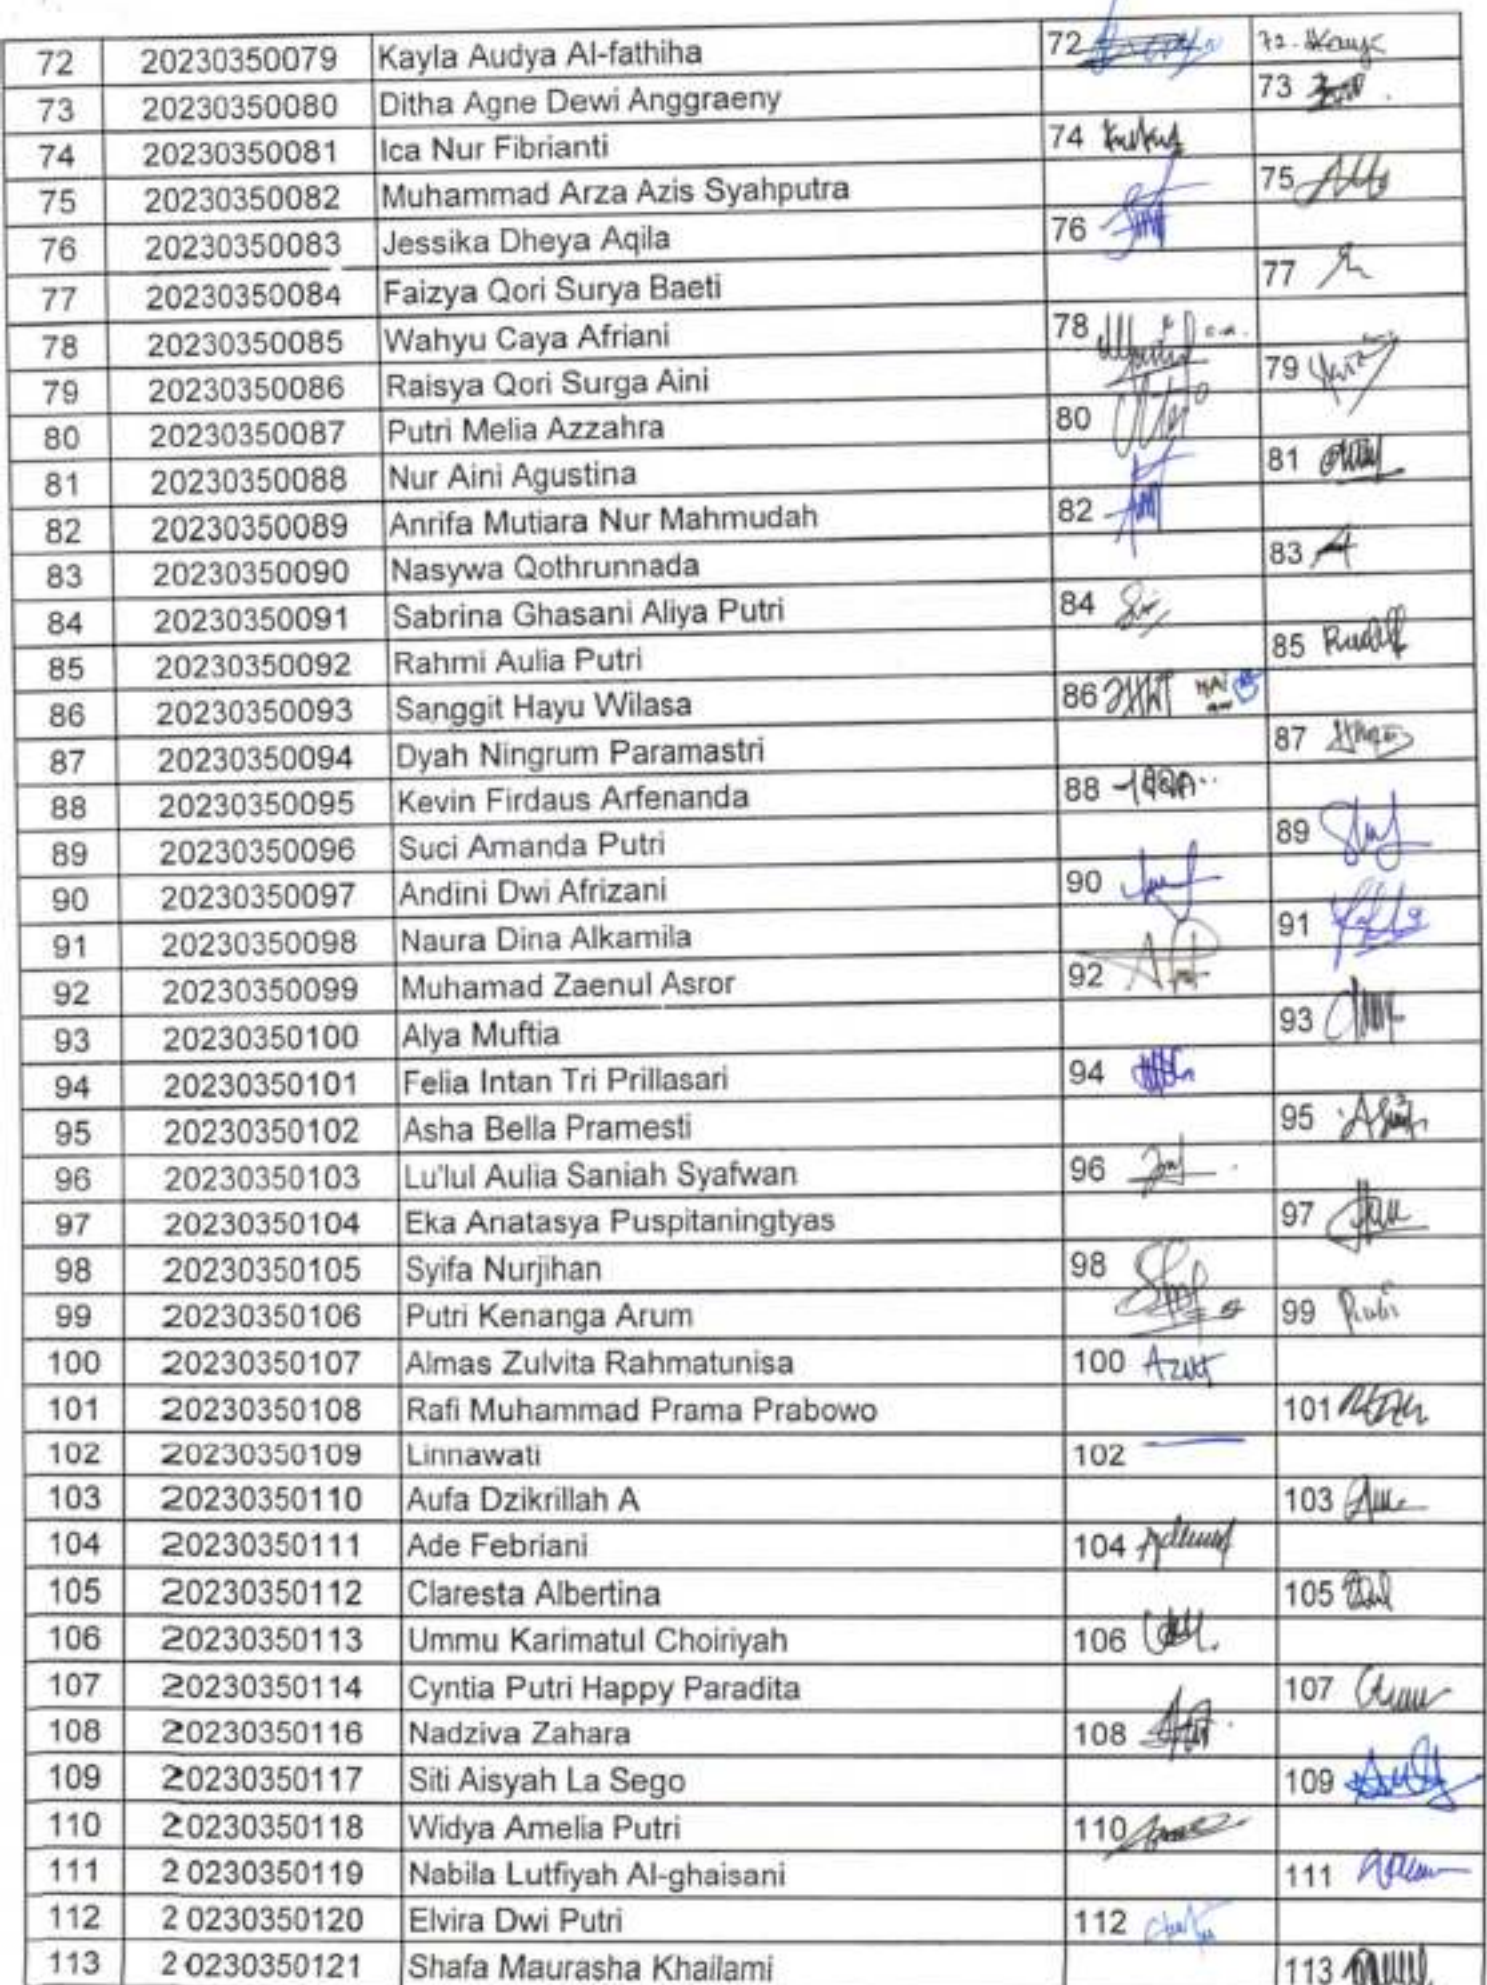 72 20230350079 Kayla Audya Al-fathiha 72 72.
73 20230350080 Ditha Agne Dewi Anggraeny 73
74 20230350081 Ica Nur Fibrianti 74
75 20230350082 Muhammad Arza Azis Syahputra 75
76 20230350083 Jessika Dheya Aqila 76
77 20230350084 Faizya Qori Surya Baeti 77
78 20230350085 Wahyu Caya Afriani 78
79 20230350086 Raisya Qori Surga Aini 79
80 20230350087 Putri Melia Azzahra 80
81 20230350088 Nur Aini Agustina 81
82 20230350089 Anrifa Mutiara Nur Mahmudah 82
83 20230350090 Nasywa Qothrunnada 83
84 20230350091 Sabrina Ghasani Aliya Putri 84
85 20230350092 Rahmi Aulia Putri 85
86 20230350093 Sanggit Hayu Wilasa 86
87 20230350094 Dyah Ningrum Paramastri 87
88 20230350095 Kevin Firdaus Arfenanda 88
89 20230350096 Suci Amanda Putri 89
90 20230350097 Andini Dwi Afrizani 90
91 20230350098 Naura Dina Alkamila 91
92 20230350099 Muhamad Zaenul Asror 92
93 20230350100 Alya Muftia 93
94 20230350101 Felia Intan Tri Prillasari 94
95 20230350102 Asha Bella Pramesti 95
96 20230350103 Lu'lul Aulia Saniah Syafwan 96
97 20230350104 Eka Anatasya Puspitaningtyas 97
98 20230350105 Syifa Nurjihan 98
99 20230350106 Putri Kenanga Arum 99
100 20230350107 Almas Zulvita Rahmatunisa 100
101 20230350108 Rafi Muhammad Prama Prabowo 101
102 20230350109 Linnawati 102
103 20230350110 Aufa Dzikrillah A 103
104 20230350111 Ade Febriani 104
105 20230350112 Claresta Albertina 105
106 20230350113 Ummu Karimatul Choiriyah 106
107 20230350114 Cyntia Putri Happy Paradita 107
108 20230350116 Nadziva Zahara 108
109 20230350117 Siti Aisyah La Sego 109
110 20230350118 Widya Amelia Putri 110
111 20230350119 Nabila Lutfiyah Al-ghaisani 111
112 20230350120 Elvira Dwi Putri 112
113 20230350121 Shafa Maurasha Khailami 113